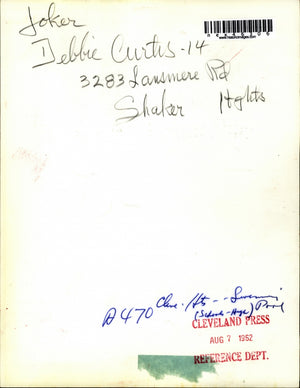 Joker
Debbie Curtis - 14
3283 Lansmere Rd
Shaker Hghts
A470 Cleve. Hts -- Swimming Pool
(Schools - High)
CLEVELAND PRESS
AUG 7 1962
REFERENCE DEPT.